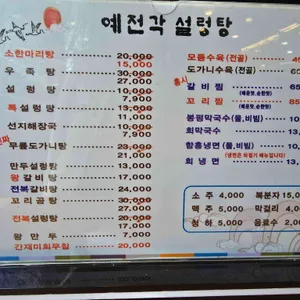 예전각 설렁탕
소한마리탕 20,000
15,000
우족탕 30,000
27,000
설렁탕 10,000
7,900
특설렁탕 13,000
선지해장국 10,000
7,900
무릎도가니탕 23,000
20,000
만두설렁탕 13,000
왕갈비탕 17,000
전복갈비탕 24,000
꼬리곰탕 30,000
27,000
전복설렁탕 20,000
17,000
왕만두 7,000
간재미회무침 20,000
모듬수육(전골)
도가니수육(전골)
갈비찜
꼬리찜
봉평막국수(물,비빔)
회막국수
함흥냉면(물,비빔)
회냉면
소주 4,000 복분자 15,0
맥주 5,000 막걸리 4,0
청하 5,000 음료수 2,0